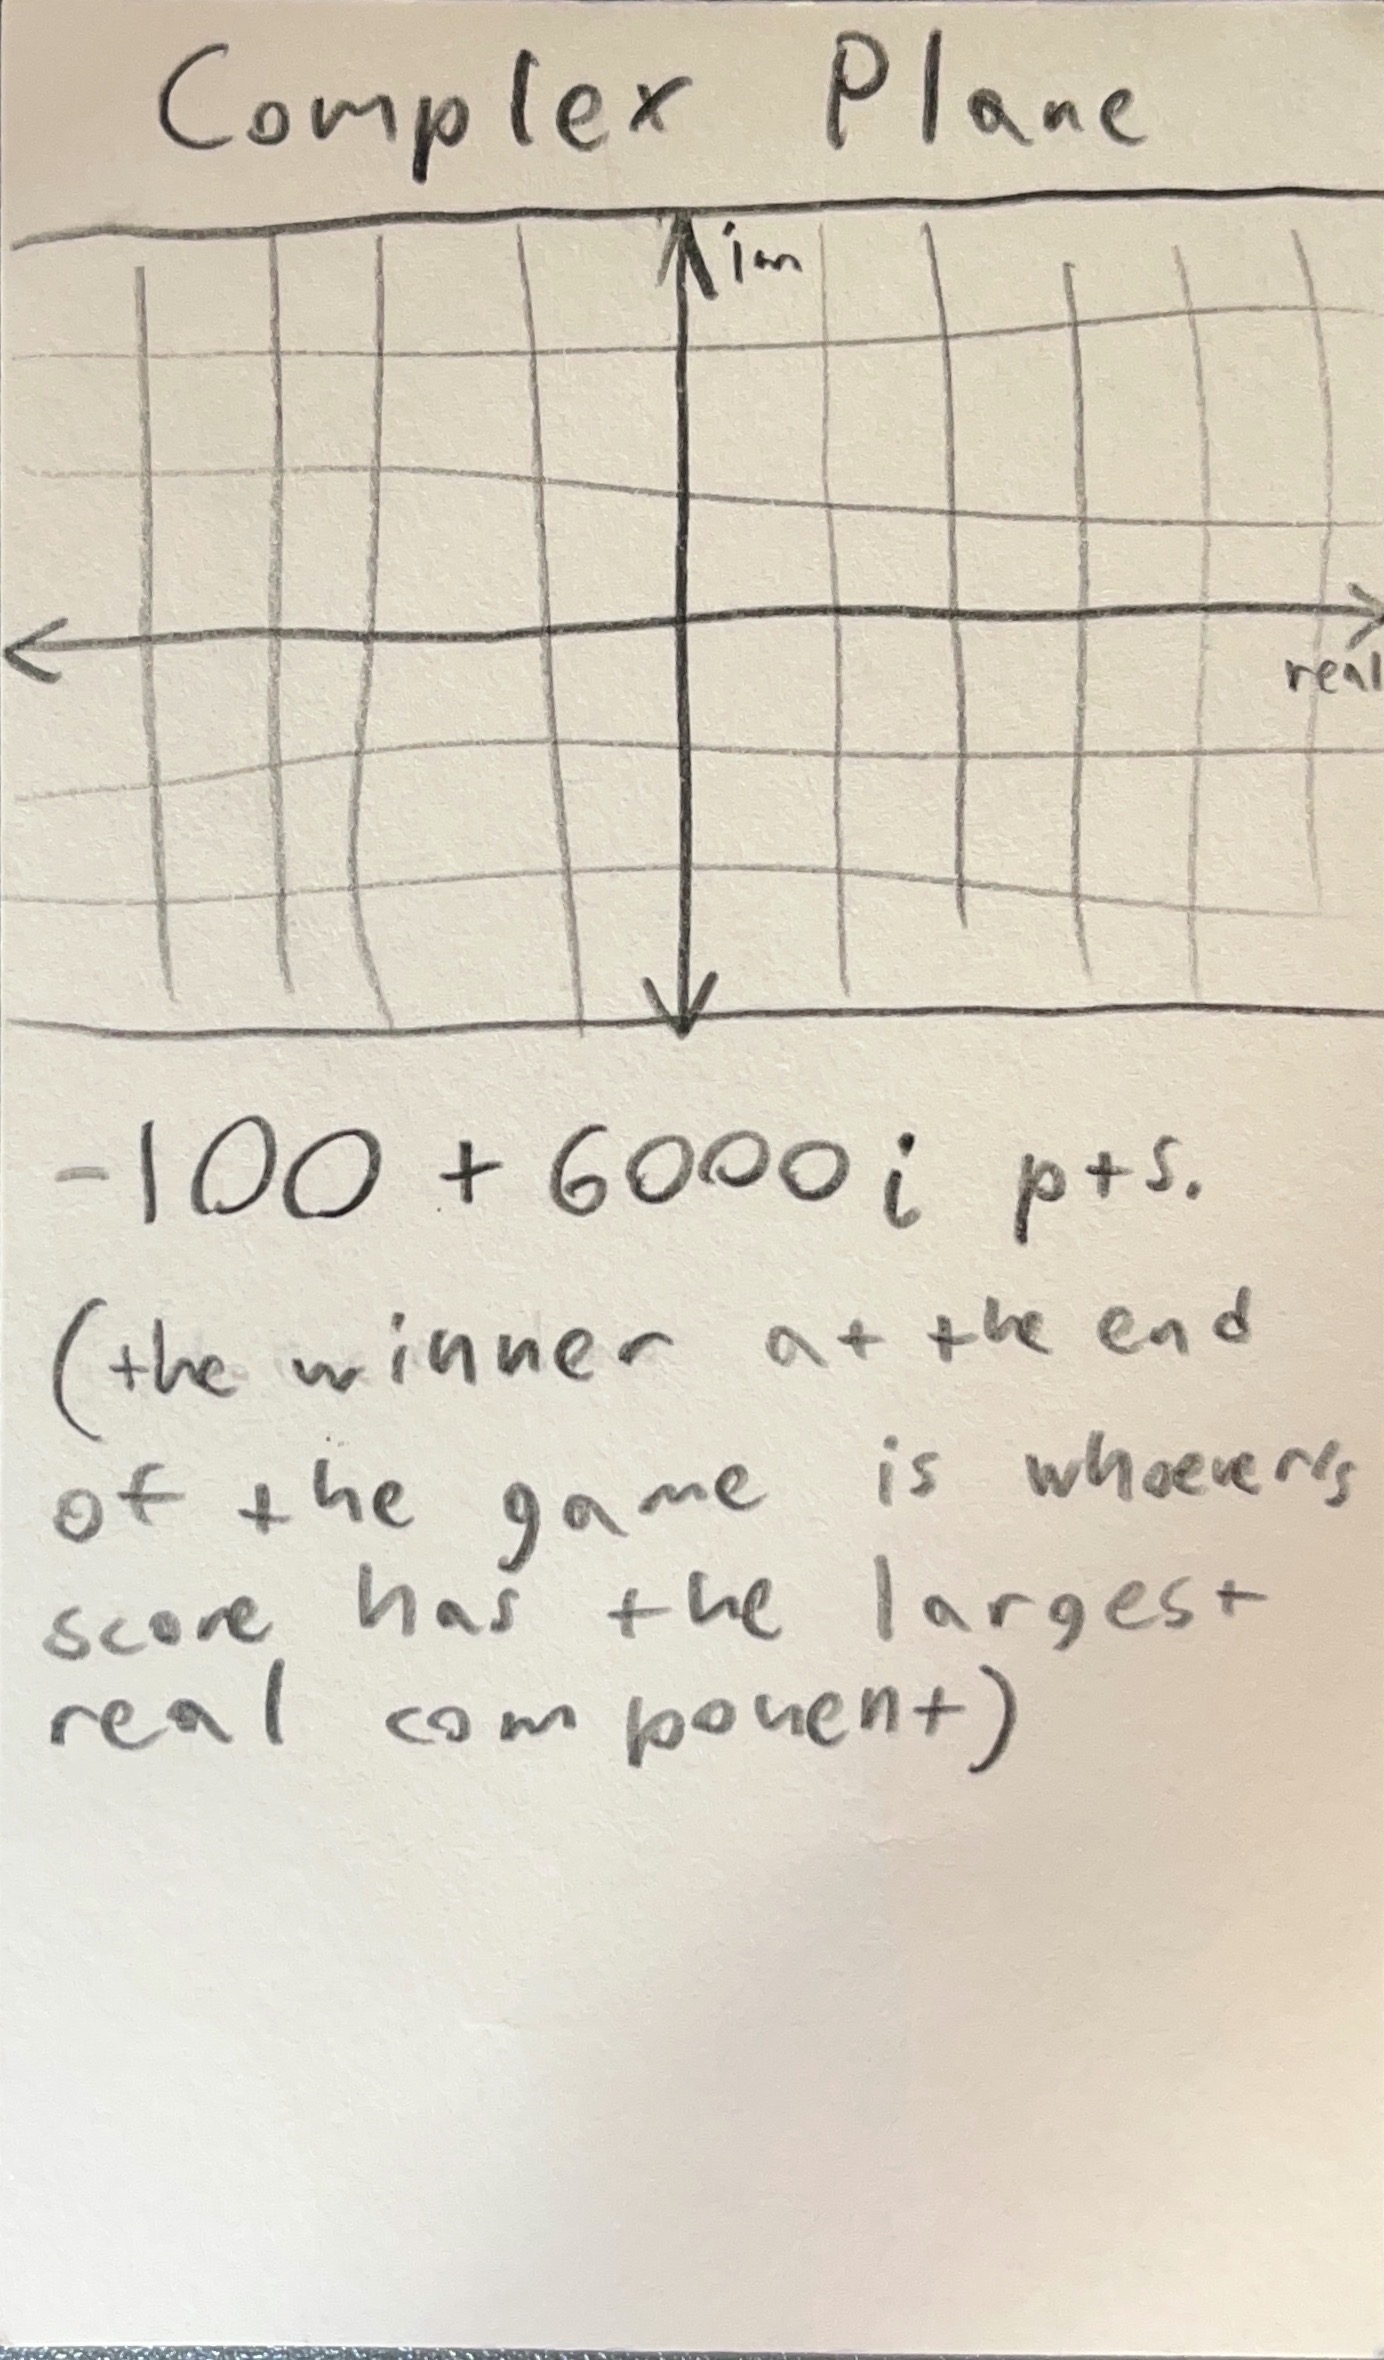 Complex Plane
im
real
-100 + 6000i pts.
(the winner at the end
of the game is whoever's
score has the largest
real component)